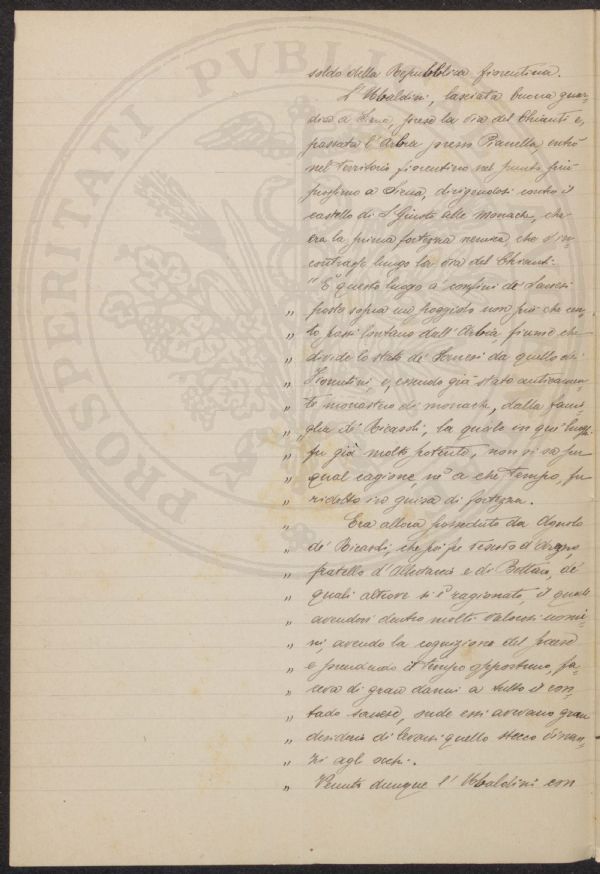 soldo della Repubblica fiorentina.
L'Ubaldini, lasciata buona guar-
dia a Siena, prese la via del Chianti e,
passata l'Arbia presso Pianella, entrò
nel territorio fiorentino nel punto più
prossimo a Siena, dirigendosi contro il
castello di S. Giusto alle monache, che
era la prima fortezza nemica, che s'in-
contrasse lungo la via del Chianti.
"È questo luogo a' confini de' Sanesi
„ posto sopra un poggiolo non più che cen-
„ to passi lontano dall'Arbia, fiume che
„ divide lo stato de' Sanesi da quello de'
„ Fiorentini, e, essendo già stato anticamen-
„ te monastero di monache, dalla fami-
„ glia de' Ricasoli, la quale in que' luoghi
„ fu già molto potente, non si sa per
„ qual cagione, nè a che tempo, fu
„ ridotto in guisa di fortezza.
„ Era allora posseduto da Agnolo
„ de' Ricasoli, che poi fu Vescovo d'Arezzo,
„ fratello d'Albertaccio e di Bettino, de'
„ quali altrove si è ragionato, il quale
„ avendovi dentro molti valorosi uomi-
„ ni, avendo la cognizione del paese
„ e prendendo il tempo opportuno, fa-
„ ceva di gran danni a tutto il con-
„ tado sanese, onde essi avevano gran
„ desiderio di levarsi quello stecco dinan-
„ zi agli occhi.
„ Venuto dunque l'Ubaldini con
PROSPERITATI PVBLI